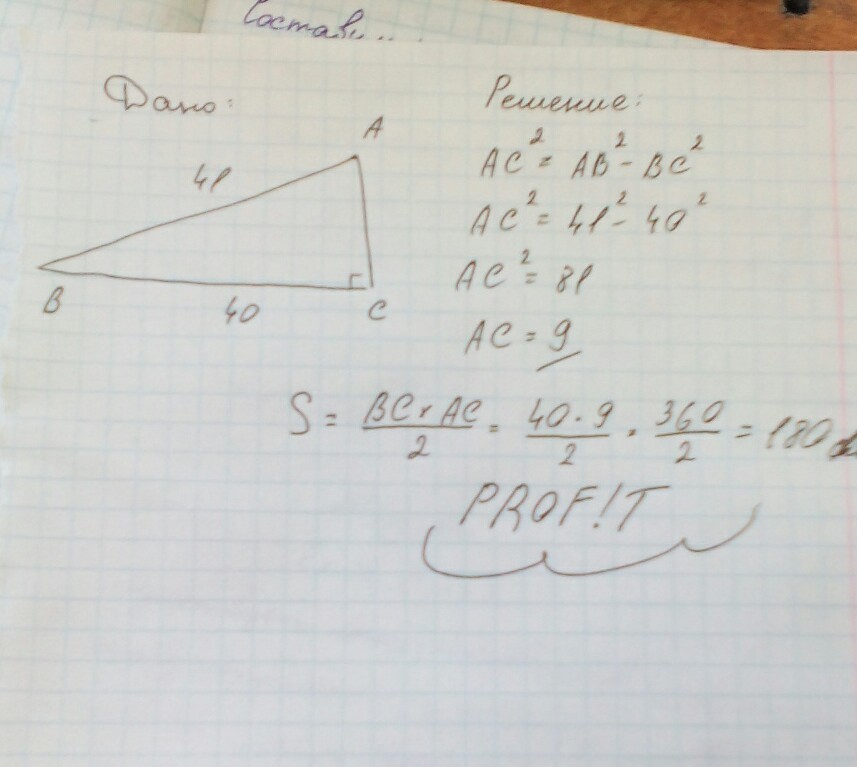 Состави...
Дано:
A
41
B
40
C
Решение:
AC² = AB² - BC²
AC² = 41² - 40²
AC² = 81
AC = 9
S = BC × AC / 2 = 40 · 9 / 2 = 360 / 2 = 180
PROF!T